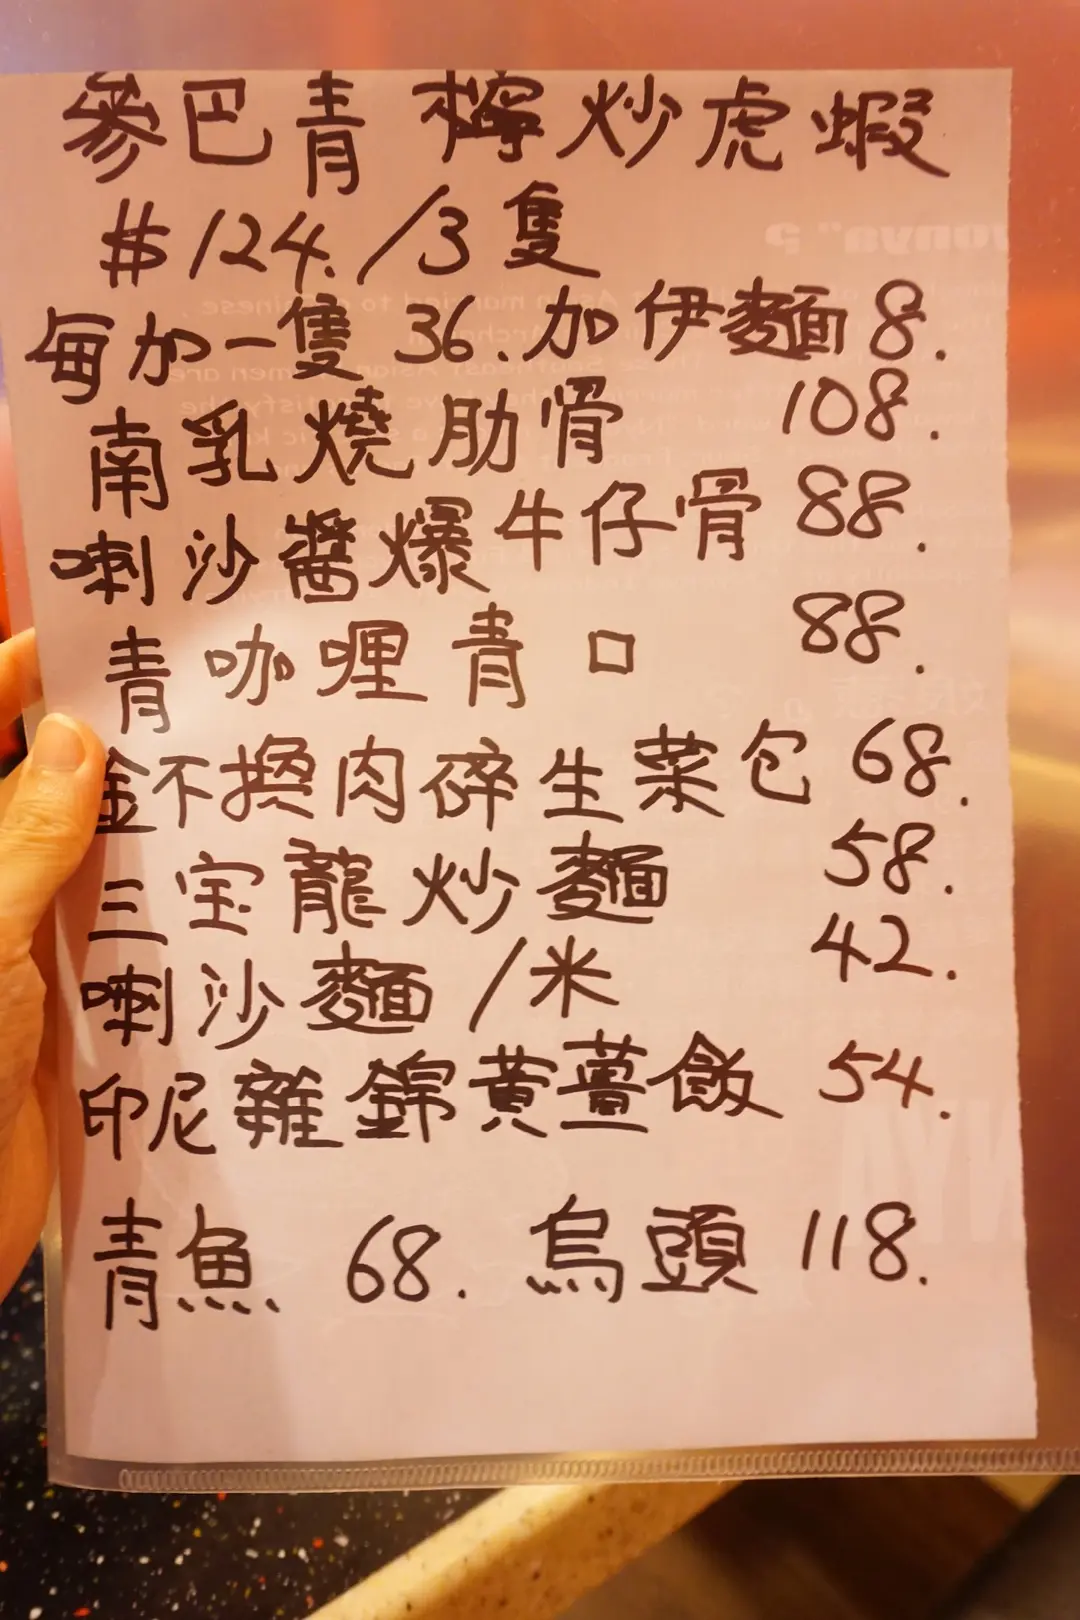 參巴青檸炒虎蝦
$124./3隻
每加一隻 36. 加伊麵 8.
南乳燒肋骨 108.
喇沙醬爆牛仔骨 88.
青咖哩青口 88.
金不換肉碎生菜包 68.
三宝龍炒麵 58.
喇沙麵/米 42.
印尼雜錦黄薑飯 54.
青魚 68. 烏頭 118.